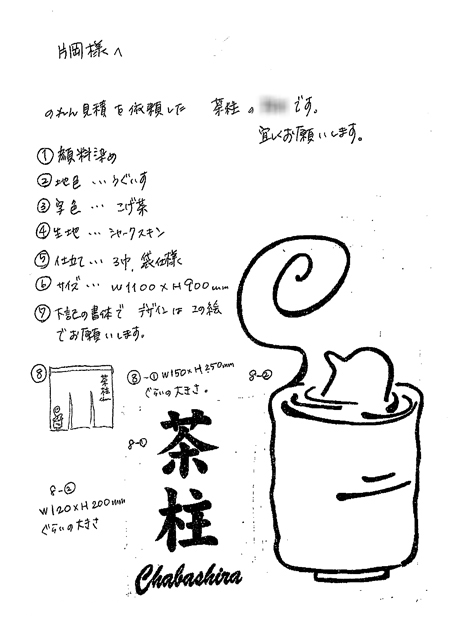 片岡様へ
のれん見積を依頼した 茶柱の です。
宜しくお願いします。
① 顔料染め
② 地色…うぐいす
③ 字色… こげ茶
④ 生地… シャークスキン
⑤ 仕立て… 3巾, 袋仕様
⑥ サイズ… W1100×H900mm
⑦ 下記の書体で デザインはこの絵
でお願いします。
⑧
茶柱
⑧-① W150×H250mm
ぐらいの大きさ。
8-②
8-①
茶柱
Chabashira
8-②
W120×H200mm
ぐらいの大きさ